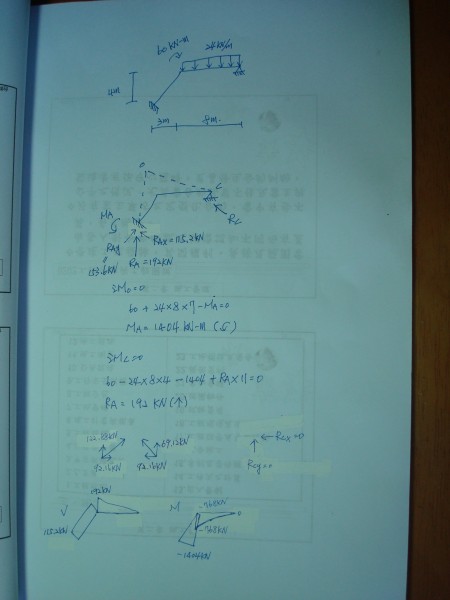 60 KN-m
24 KN/m
4m
3m
8m
O
C
MA
RC
RAy
RAX=115.2KN
153.6KN
RA=192KN
ΣMo=0
60+24×8×7-MA=0
MA=1404 KN-m
ΣMc=0
60-24×8×4-1404+RA×11=0
RA=192 KN(↑)
69.12KN
92.16KN
RCX=0
RCy=0
192KN
V
M
115.2KN
-768KN
-768KN
0
-1404KN